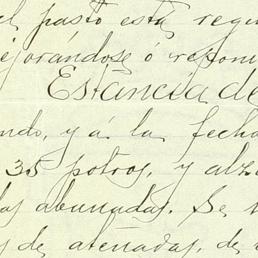 el pasto está regu
ejorándose ó repon
Estancia de
ndo, y á la fecha
35 potros, y alz
das abunadas. Se
s de ateñadas, de